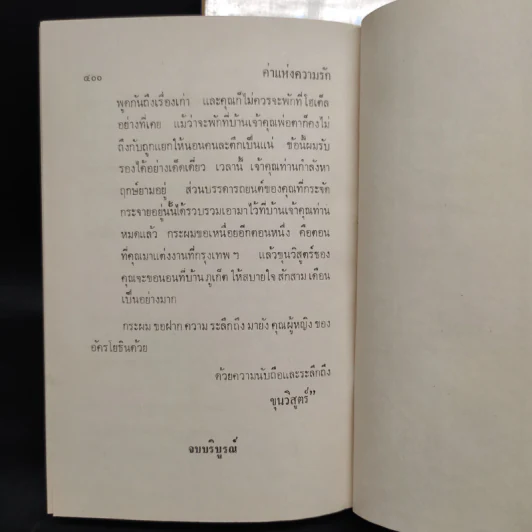 ๕๐๐ ค่าแห่งความรัก
พูดกันถึงเรื่องเก่า และคุณก็ไม่ควรจะพักที่โฮเต็ล
อย่างที่เคย แม้ว่าจะพักที่บ้านเจ้าคุณพ่อตาก็คงไม่
ถึงกับถูกแยกให้นอนคนละตึกเป็นแน่ ข้อนี้ผมรับ
รองได้อย่างเด็ดเดี่ยว เวลานี้ เจ้าคุณท่านกำลังหา
ฤกษ์ยามอยู่ ส่วนบรรดารถยนต์ของคุณที่กระจัด
กระจายอยู่นั้นได้รวบรวมเอามาไว้ที่บ้านเจ้าคุณท่าน
หมดแล้ว กระผมขอเหนื่อยอีกตอนหนึ่ง คือตอน
ที่คุณมาแต่งงานที่กรุงเทพ ฯ แล้วขุนวิสูตร์ของ
คุณจะขอนอนที่บ้าน ภูเก็ต ให้สบายใจ สักสาม เดือน
เป็นอย่างมาก
กระผม ขอฝาก ความ ระลึกถึง มายัง คุณผู้หญิง ของ
อัครโยธินด้วย
ด้วยความนับถือและระลึกถึง
ขุนวิสูตร์”
จบบริบูรณ์